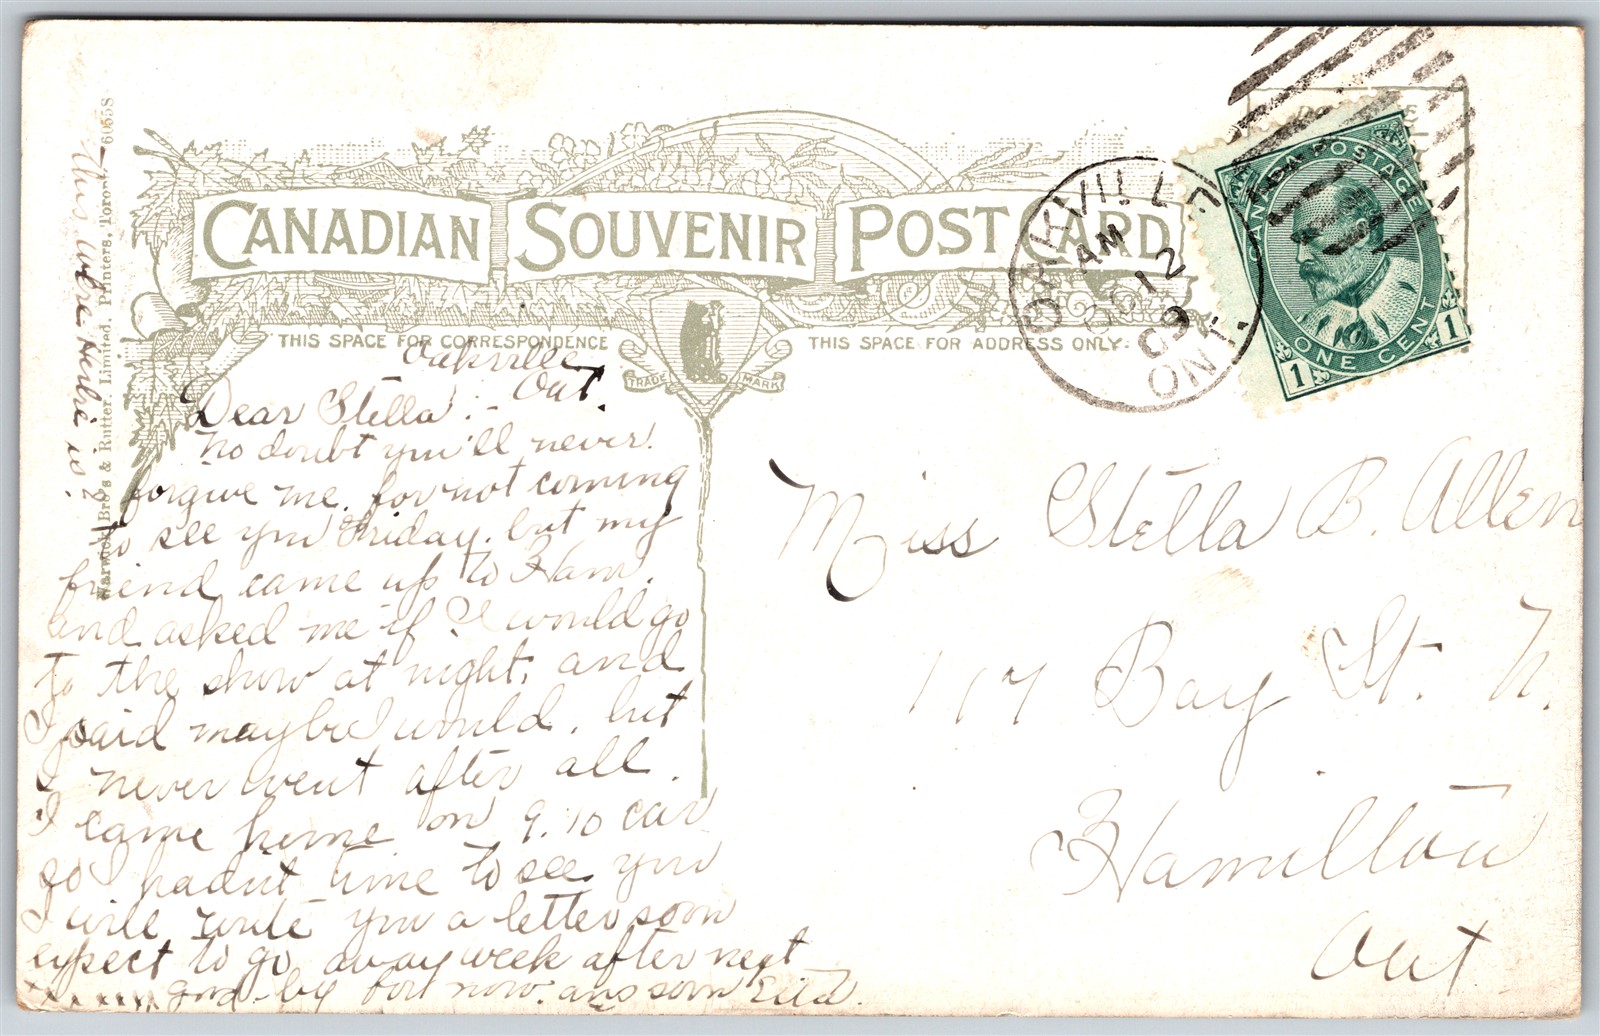 CANADIAN SOUVENIR POST CARD
THIS SPACE FOR CORRESPONDENCE
THIS SPACE FOR ADDRESS ONLY.
TRADE MARK
Warwick Bro's & Rutter, Limited, Printers, Toronto 6055S
This is where Herbie is?
OAKVILLE
AM
OC 12
09
ONT.
CANADA POSTAGE
ONE CENT
1 1
Oakville
Ont.
Dear Stella:-
No doubt you'll never
forgive me for not coming
to see you Friday. but my
friend came up to Ham.
and asked me if I would go
to the show at night, and
I said maybe I would, but
I never went after all.
I came home on 9.10 car
so I hadn't time to see you
I will write you a letter soon
expect to go away week after next
xxxxxx good-by for now. ans soon Etta.
Miss Stella B. Allen
117 Bay St. N.
Hamilton
Ont